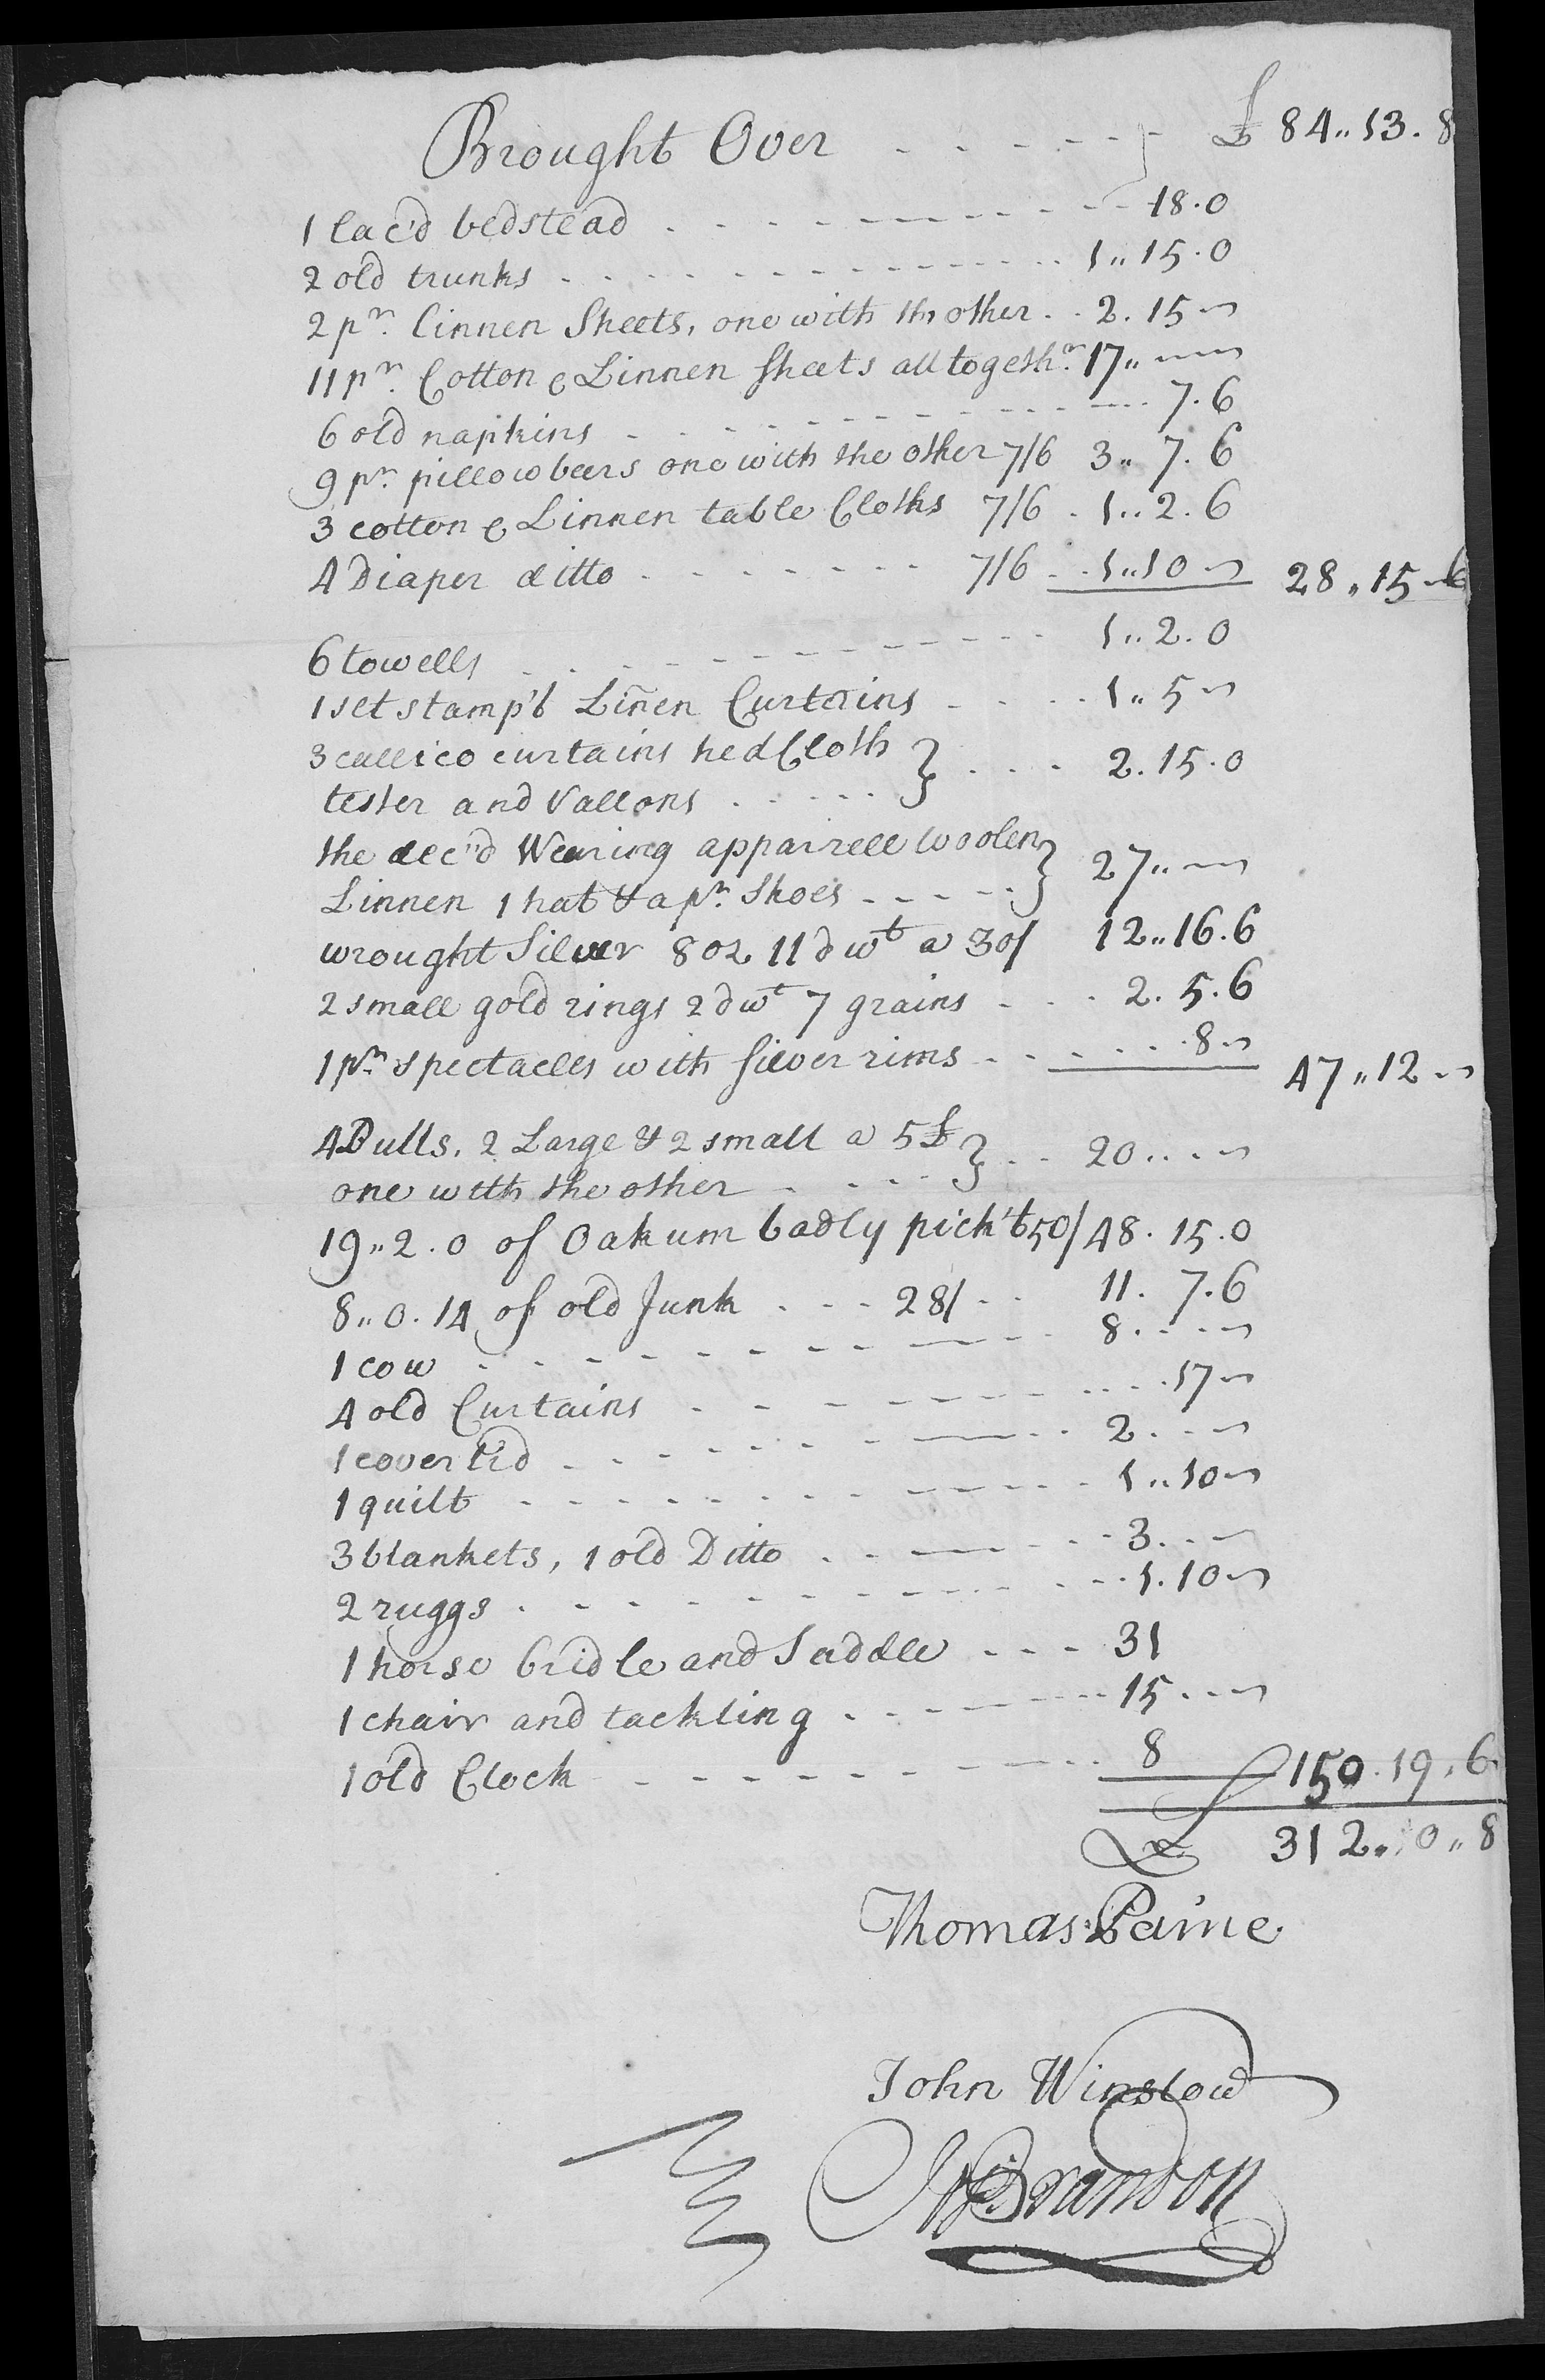 Brought Over - - - - - - £ 84,, 13. 8
1 lac'd bedstead - - - - - - 18.0
2 old trunks - - - - - - 1,, 15.0
2 pr. linnen Sheets, one with th other - - 2. 15 -
11 pr. Cotton & Linnen sheets all togethr. 17,, -
6 old napkins - - - - - - 7.6
9 pr. pillowbeers one with the other 7/6 3,, 7. 6
3 cotton & Linnen table Cloths 7/6 - 1,, 2. 6
4 Diaper ditto - - - - - - 7/6 - - 1,, 10 - 28,, 15 - 6
6 towells - - - - - - 1,, 2. 0
1 set stamp'd Liñen Curtains - - - - 1,, 5 -
3 callico curtains hed Cloth } - - - 2. 15. 0
tester and Vallons - - - - -
the dec'd Wearing appairell woolen } 27,, -
Linnen 1 hat & a pr. Shoes - - - - -
wrought Silver 8 oz 11 dwt a 30/ 12,, 16. 6
2 small gold rings 2 dwt 7 grains - - - 2. 5. 6
1 pr. Spectacles with silver rims - - - - - 8 - 47,, 12 -
4 Bulls. 2 Large & 2 small a 5 £ } - - 20 - - -
one with the other - - - -
19,, 2. 0 of Oakum badly pick't 50/ 48. 15. 0
8,, 0. 14 of old Junk - - - 28/ - - 11. 7. 6
1 cow - - - - - - 8 - - -
4 old Curtains - - - - - - 17 -
1 coverlid - - - - - - 2 - - -
1 quilt - - - - - - 1,, 10 -
3 blankets, 1 old Ditto - - - - - 3 - - -
2 ruggs - - - - - - 1. 10 -
1 horse bridle and Saddle - - - 31
1 chair and tackling - - - - - 15 - - -
1 old Clock - - - - - - 8 150. 19. 6
£ 312,, 10,, 8
Thomas Paine
John Winslow
Brandon